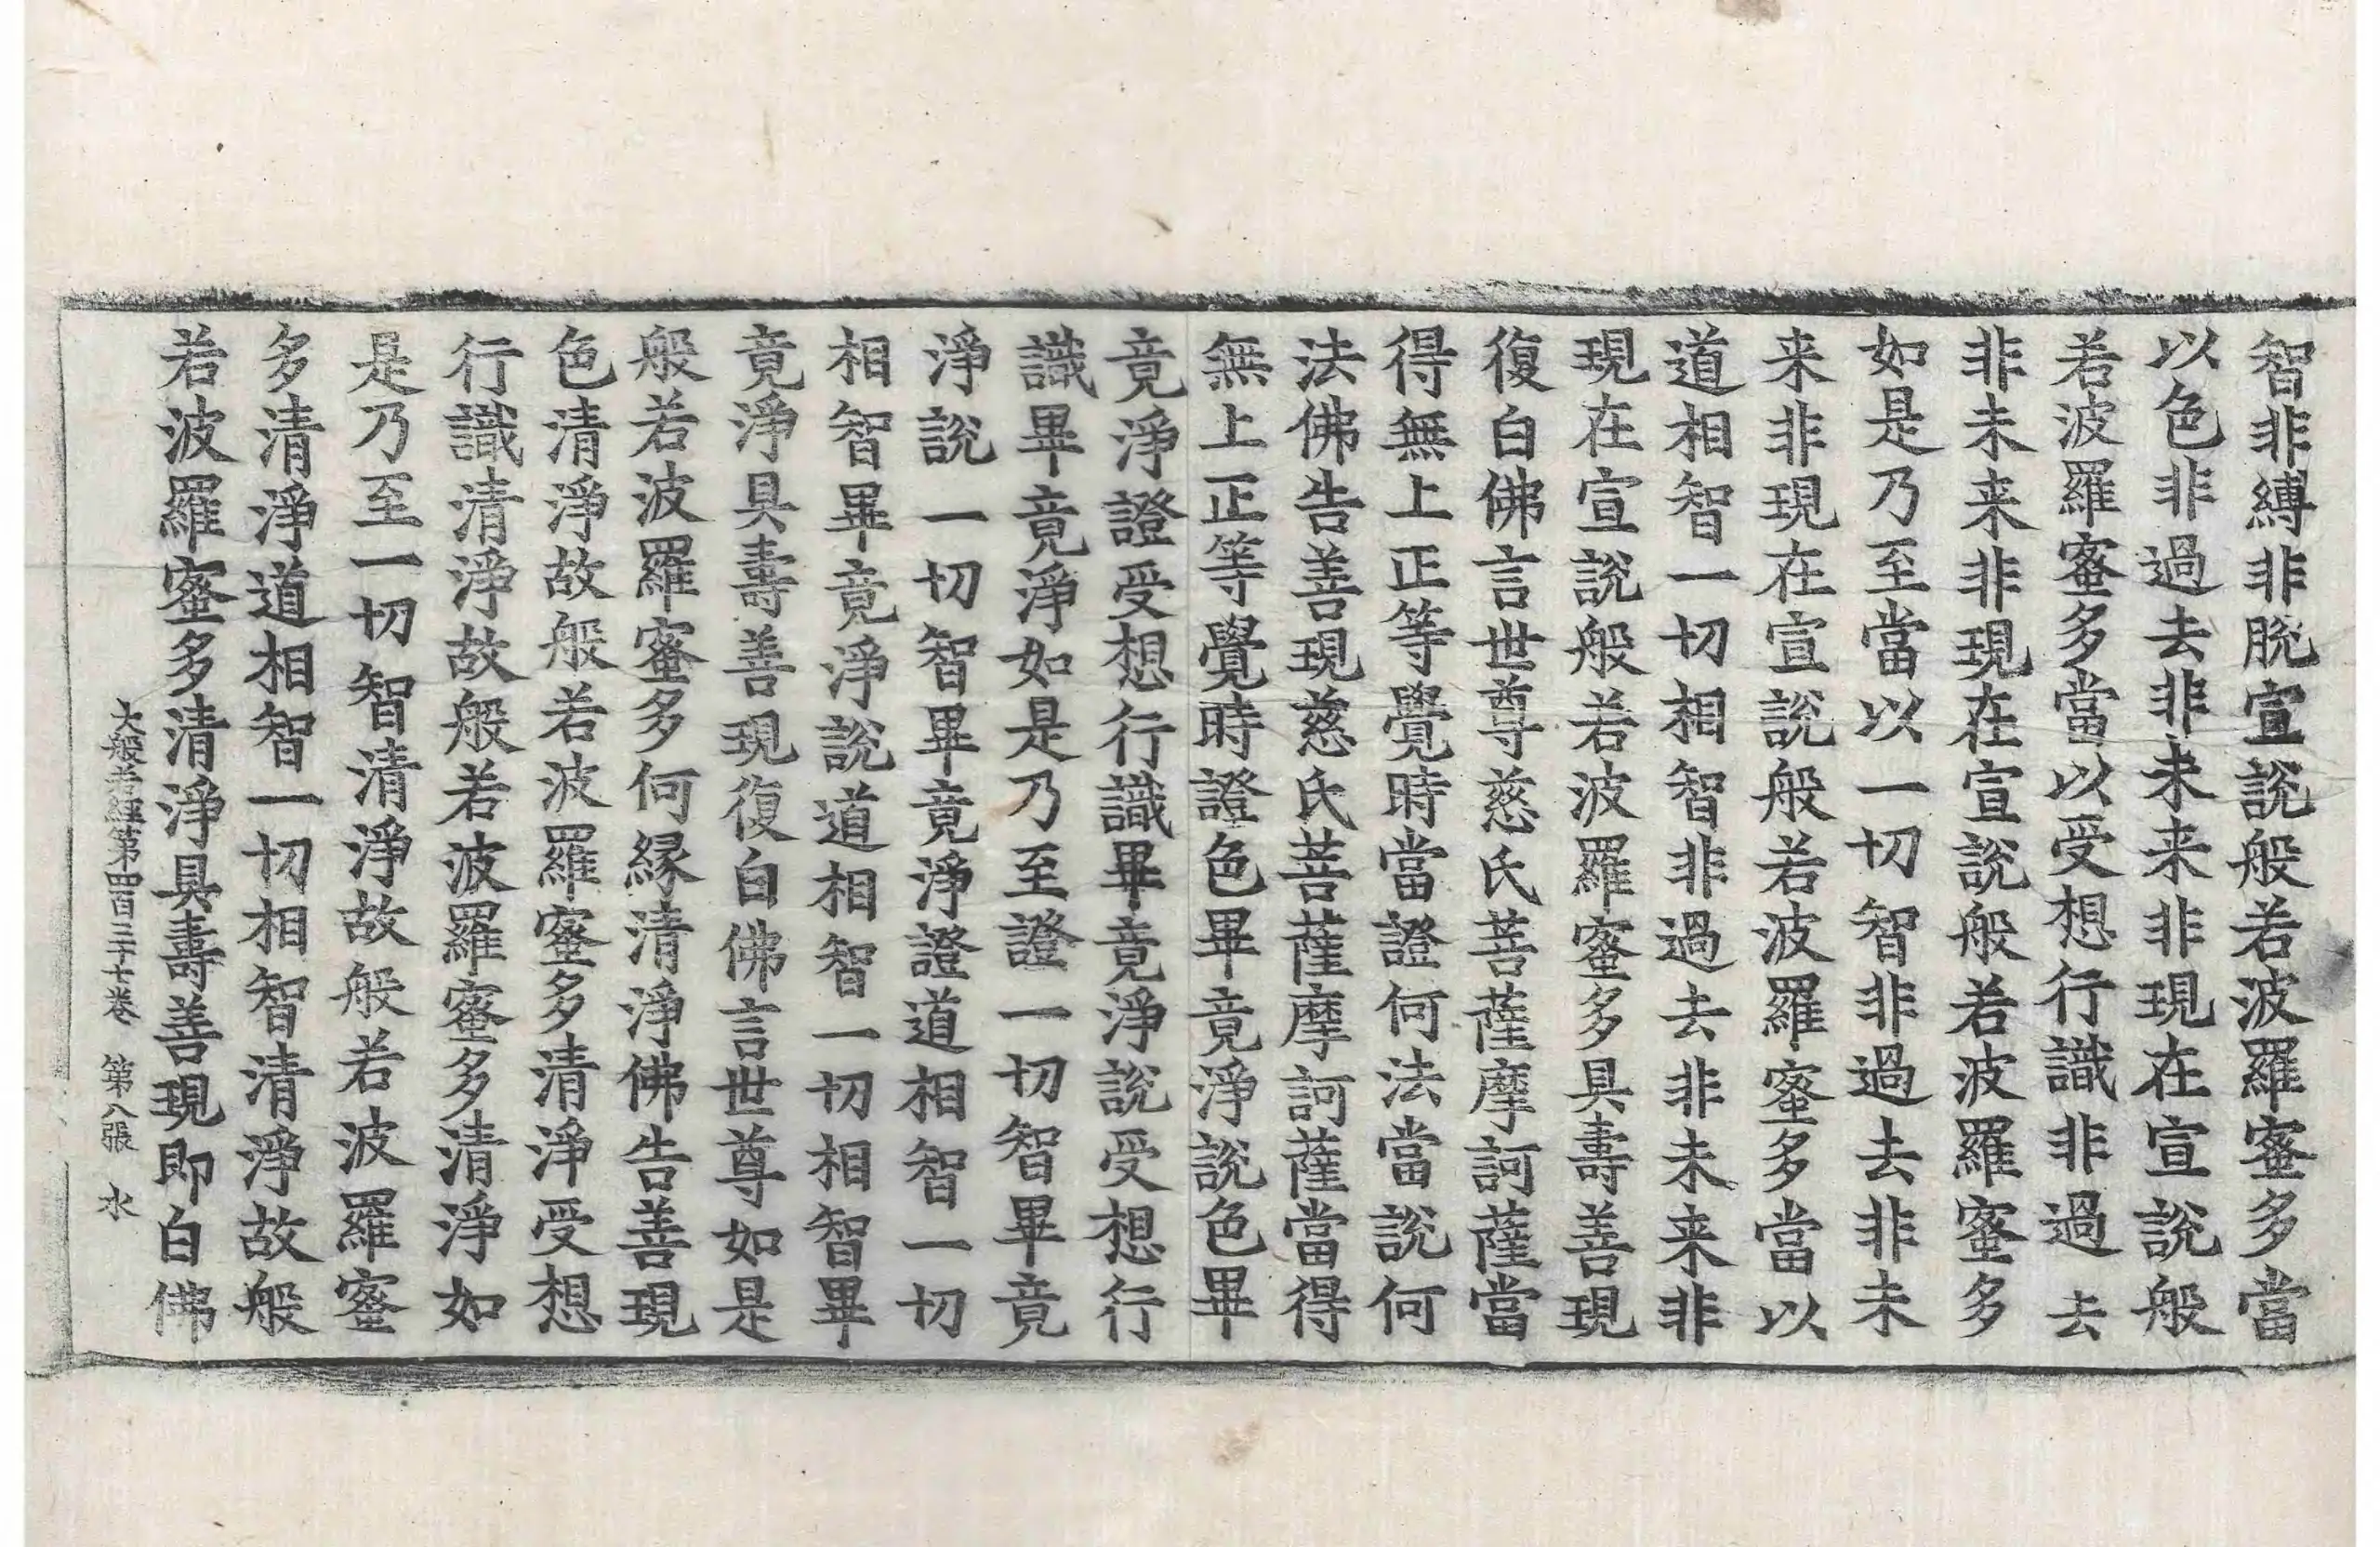 智非縛非脫宣說般若波羅蜜多當
以色非過去非未来非現在宣說般
若波羅蜜多當以受想行識非過去
非未来非現在宣說般若波羅蜜多
如是乃至當以一切智非過去非未
来非現在宣說般若波羅蜜多當以
道相智一切相智非過去非未来非
現在宣說般若波羅蜜多具壽善現
復白佛言世尊慈氏菩薩摩訶薩當
得無上正等覺時當證何法當說何
法佛告善現慈氏菩薩摩訶薩當得
無上正等覺時證色畢竟淨說色畢
竟淨證受想行識畢竟淨說受想行
識畢竟淨如是乃至證一切智畢竟
淨說一切智畢竟淨證道相智一切
相智畢竟淨說道相智一切相智畢
竟淨具壽善現復白佛言世尊如是
般若波羅蜜多何緣清淨佛告善現
色清淨故般若波羅蜜多清淨受想
行識清淨故般若波羅蜜多清淨如
是乃至一切智清淨故般若波羅蜜
多清淨道相智一切相智清淨故般
若波羅蜜多清淨具壽善現即白佛
大般若經第四百三十七卷 第八張 水